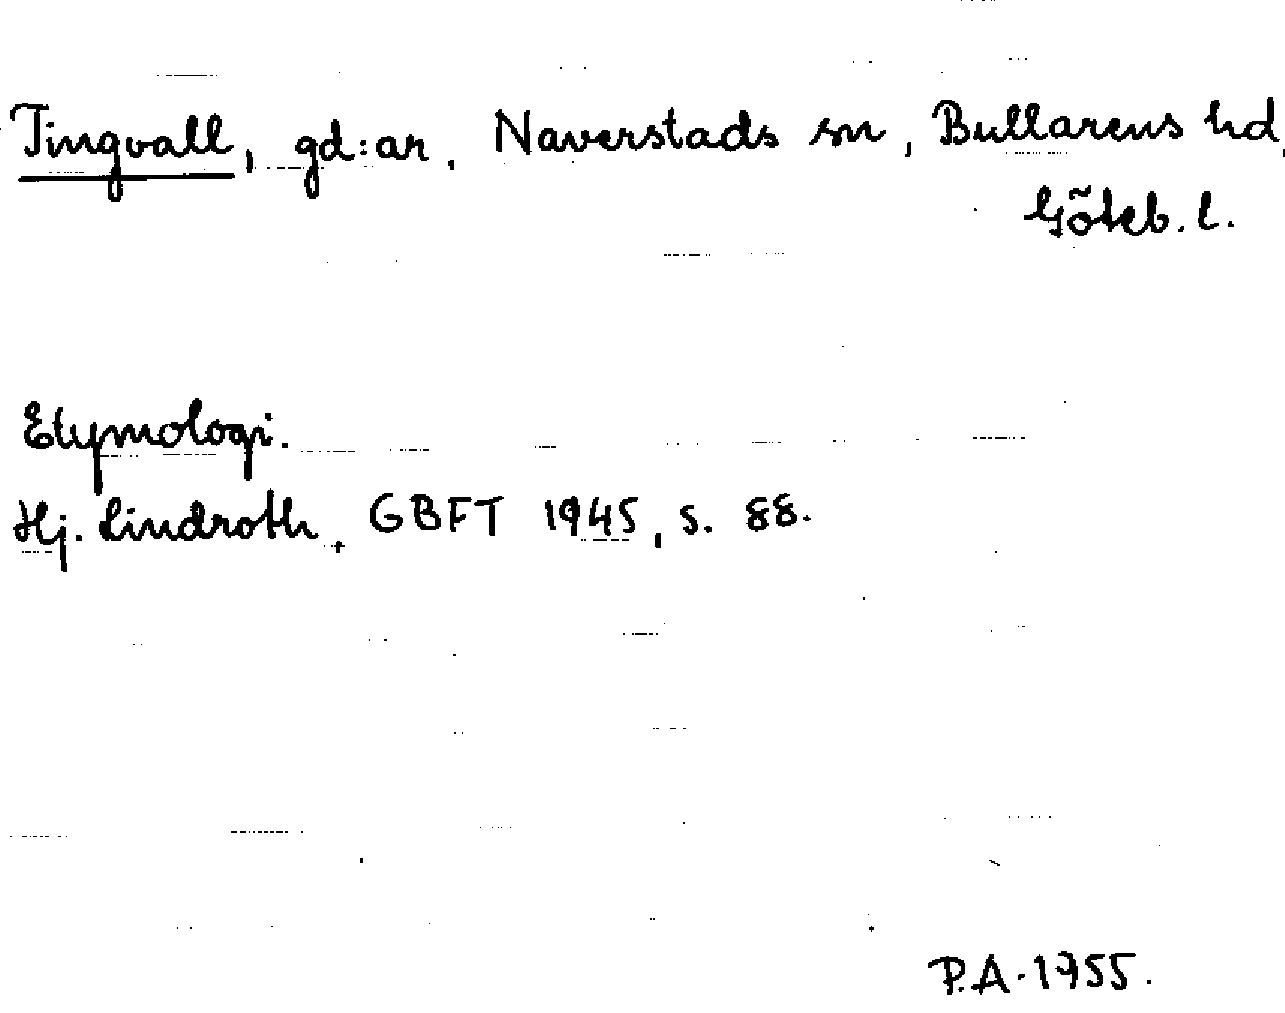 Tingvall, gd:ar, Naverstads sn, Bullarens hd,
Göteb. l.
Etymologi.
Hj. Lindroth, GBFT 1945, s. 88.
P.A. 1955.